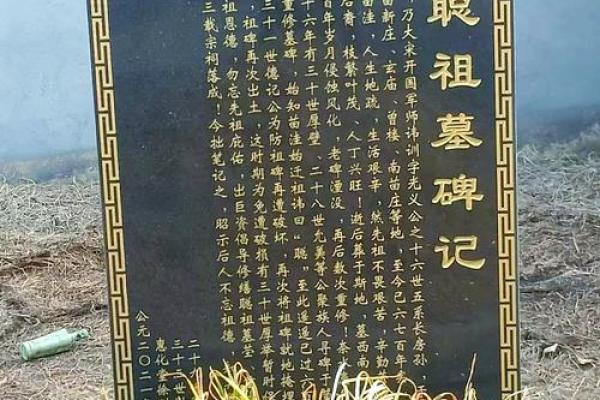 聪祖墓碑记
乃大宋开国军师讳训字光义公之十六世五系长房孙
苗新庄、玄庙、曾楼、南苗庄等地，至今已六七百年
苗洼，人生地疏，生活艰辛，然先祖不畏艰苦，辛勤
后裔，枝繁叶茂、人丁兴旺！逝后葬于斯地，墓西南
百年岁月侵蚀风化，老碑湮没，再后数次重修！奈
十六年有三十世厚壁、二十八世允美等公聚族人寻碑于
重修墓碑，始知苗洼始迁祖讳曰“聪”，至此遥遥已过六
三十一世德记公为防祖碑再遭破坏，再次将祖碑就地掩埋
，祖碑再次出土，这时期为免遭破损有三十世厚举暂时保
祖恩德，勿忘先祖庇佑，出巨资倡导修缮聪祖墓茔，
三载宗祠落成！今拙笔记之，昭示后人不忘祖德，
二十九
三十三世
惠化堂徐
公元二〇二